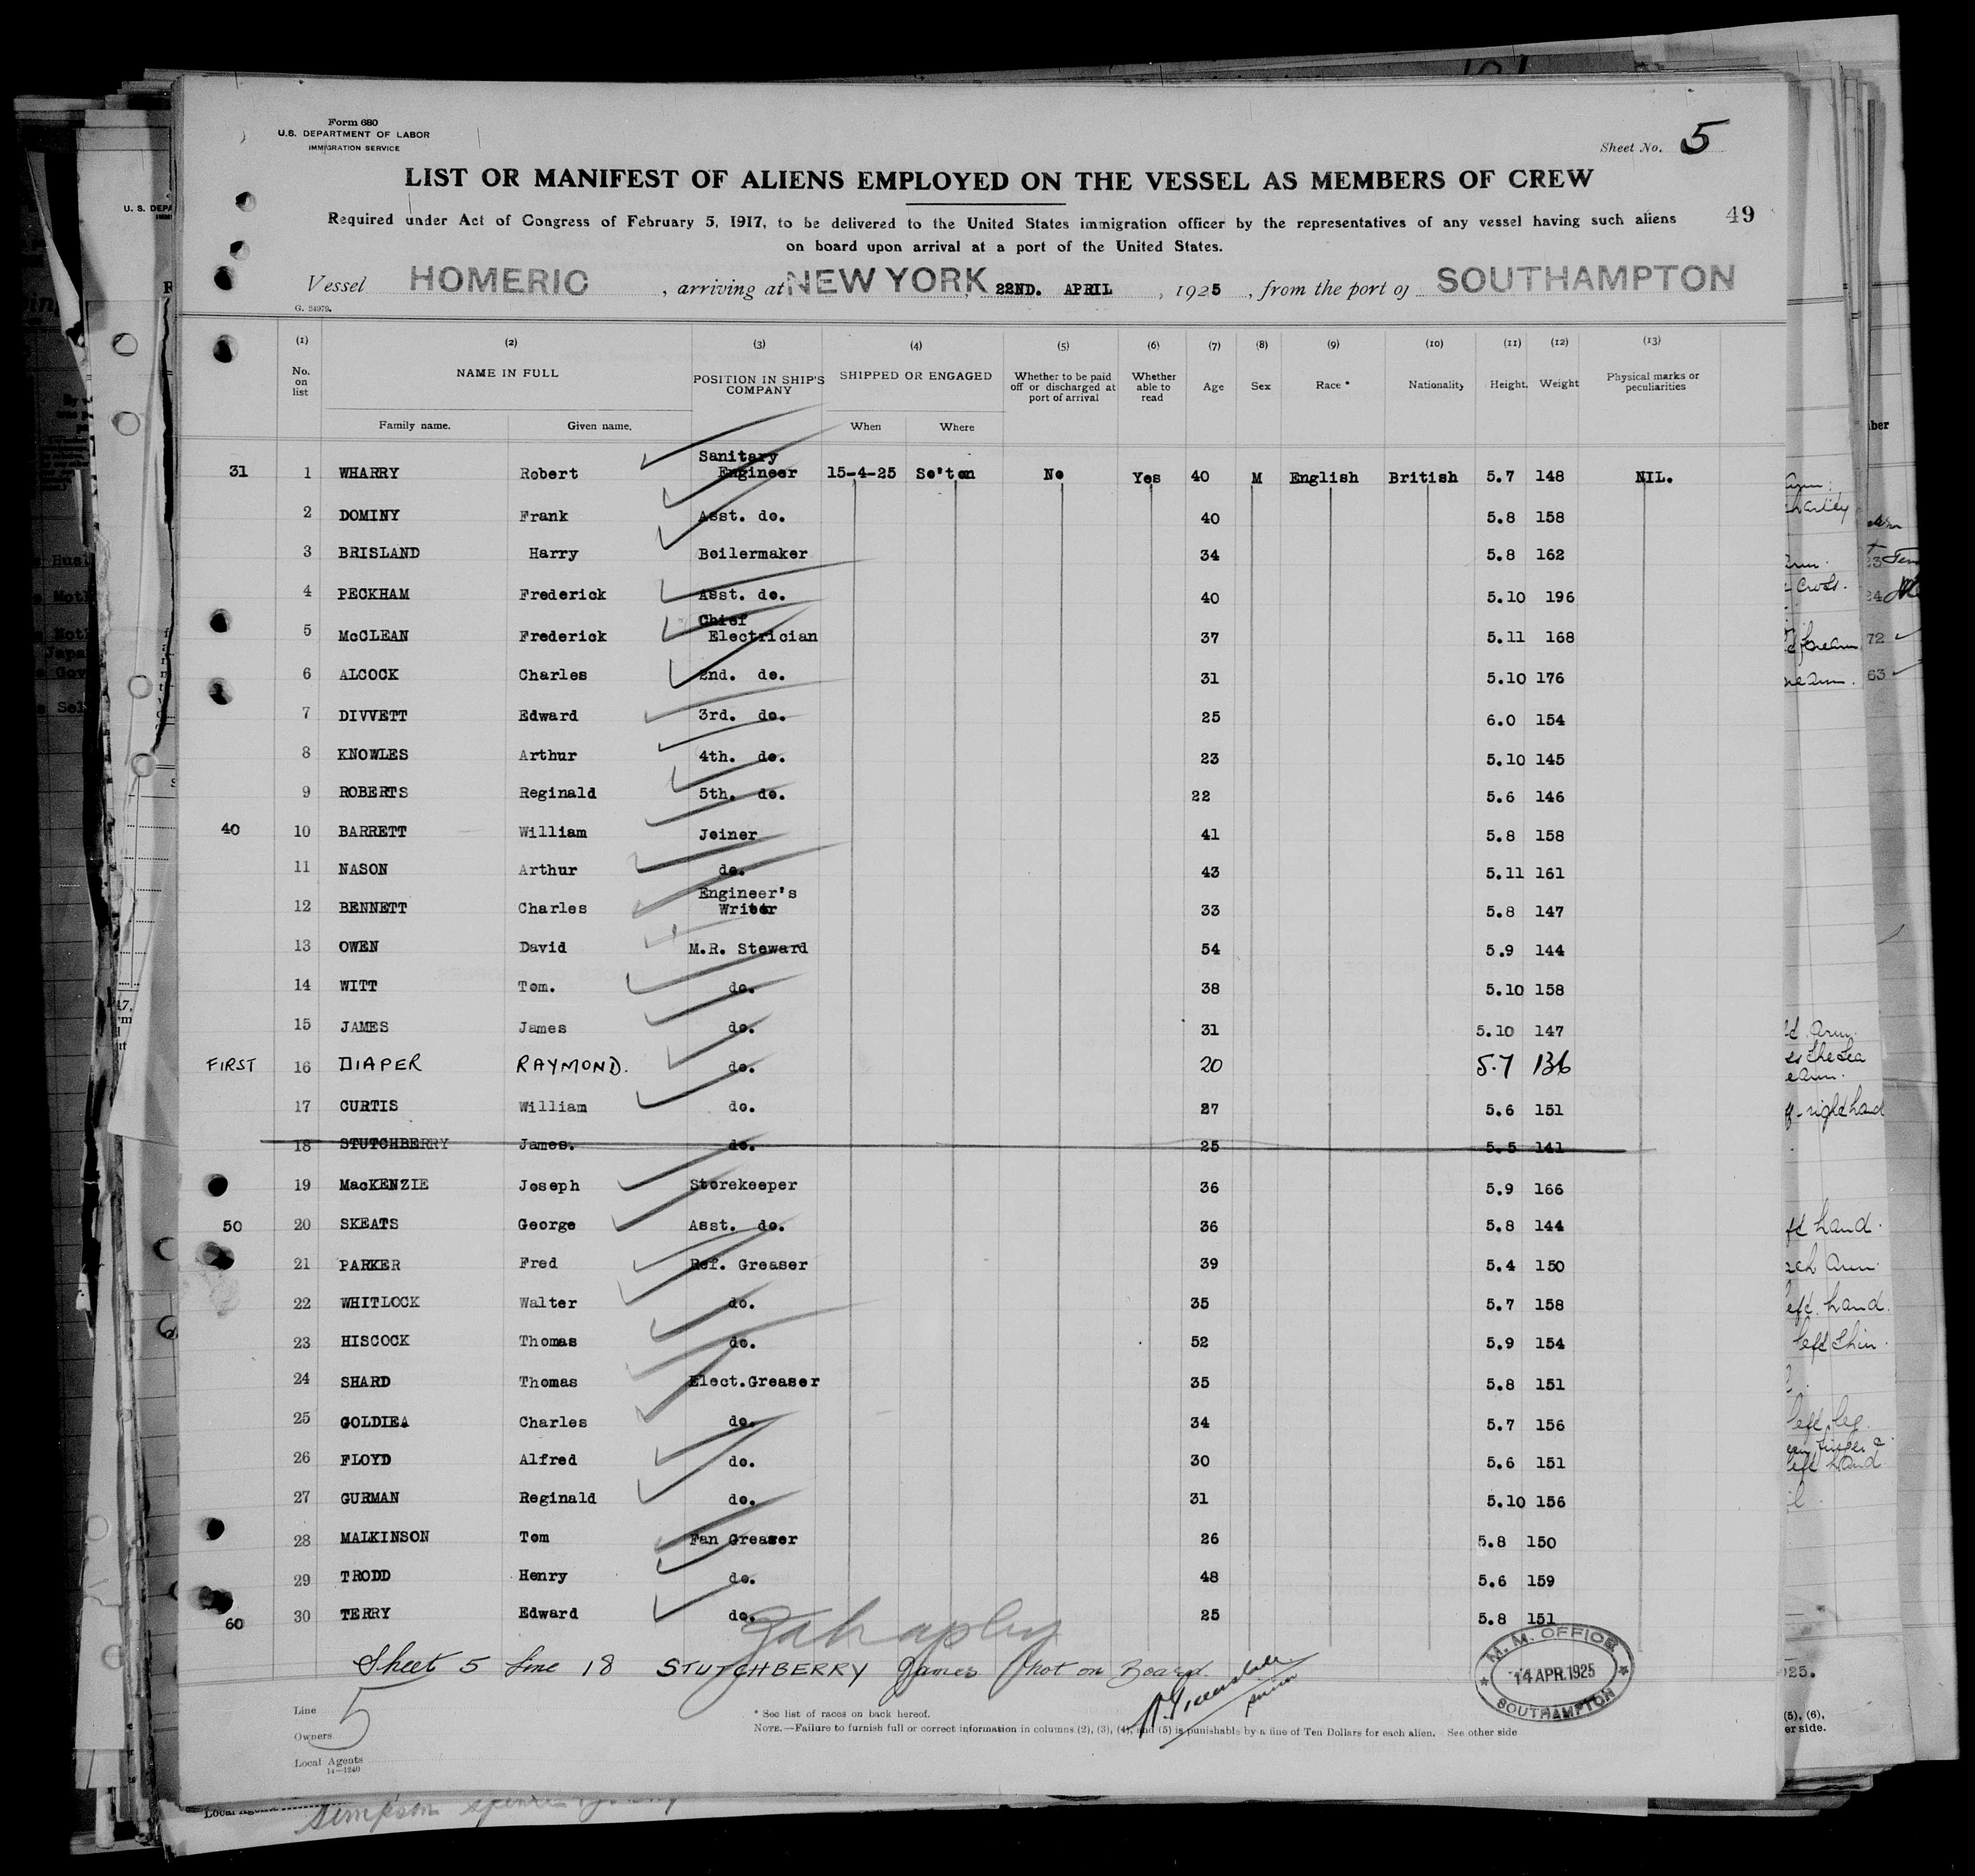 Form 680
U.S. DEPARTMENT OF LABOR
IMMIGRATION SERVICE
Sheet No. 5
LIST OR MANIFEST OF ALIENS EMPLOYED ON THE VESSEL AS MEMBERS OF CREW
Required under Act of Congress of February 5, 1917, to be delivered to the United States immigration officer by the representatives of any vessel having such aliens
on board upon arrival at a port of the United States.
49
Vessel HOMERIC, arriving at NEW YORK, 22ND. APRIL, 1925, from the port of SOUTHAMPTON
G. 24979.
(1) (2) (3) (4) (5) (6) (7) (8) (9) (10) (11) (12) (13)
No. on list NAME IN FULL POSITION IN SHIP'S COMPANY SHIPPED OR ENGAGED Whether to be paid off or discharged at port of arrival Whether able to read Age Sex Race * Nationality Height. Weight Physical marks or peculiarities
Family name. Given name. When Where
31 1 WHARRY Robert Sanitary Engineer 15-4-25 So'ton No Yes 40 M English British 5.7 148 NIL.
2 DOMINY Frank Asst. do. 40 5.8 158
3 BRISLAND Harry Boilermaker 34 5.8 162
4 PECKHAM Frederick Asst. do. 40 5.10 196
5 McCLEAN Frederick Chief Electrician 37 5.11 168
6 ALCOCK Charles 2nd. do. 31 5.10 176
7 DIVVETT Edward 3rd. do. 25 6.0 154
8 KNOWLES Arthur 4th. do. 23 5.10 145
9 ROBERTS Reginald 5th. do. 22 5.6 146
40 10 BARRETT William Joiner 41 5.8 158
11 NASON Arthur do. 43 5.11 161
12 BENNETT Charles Engineer's Writer 33 5.8 147
13 OWEN David M.R. Steward 54 5.9 144
14 WITT Tom. do. 38 5.10 158
15 JAMES James do. 31 5.10 147
FIRST 16 DIAPER RAYMOND. do. 20 5.7 136
17 CURTIS William do. 27 5.6 151
18 STUTCHBERRY James. do. 25 5.5 141
19 MacKENZIE Joseph Storekeeper 36 5.9 166
50 20 SKEATS George Asst. do. 36 5.8 144
21 PARKER Fred Ref. Greaser 39 5.4 150
22 WHITLOCK Walter do. 35 5.7 158
23 HISCOCK Thomas do. 52 5.9 154
24 SHARD Thomas Elect.Greaser 35 5.8 151
25 GOLDIEA Charles do. 34 5.7 156
26 FLOYD Alfred do. 30 5.6 151
27 GURMAN Reginald do. 31 5.10 156
28 MALKINSON Tom Fan Greaser 26 5.8 150
29 TRODD Henry do. 48 5.6 159
60 30 TERRY Edward do. 25 5.8 151
Sheet 5 Line 18 STUTCHBERRY James Not on Board.
M. M. OFFICE
14 APR.1925
SOUTHAMPTON
Line 5
Owners
Local Agents
14—1240
* See list of races on back hereof.
NOTE.—Failure to furnish full or correct information in columns (2), (3), (4), and (5) is punishable by a fine of Ten Dollars for each alien. See other side